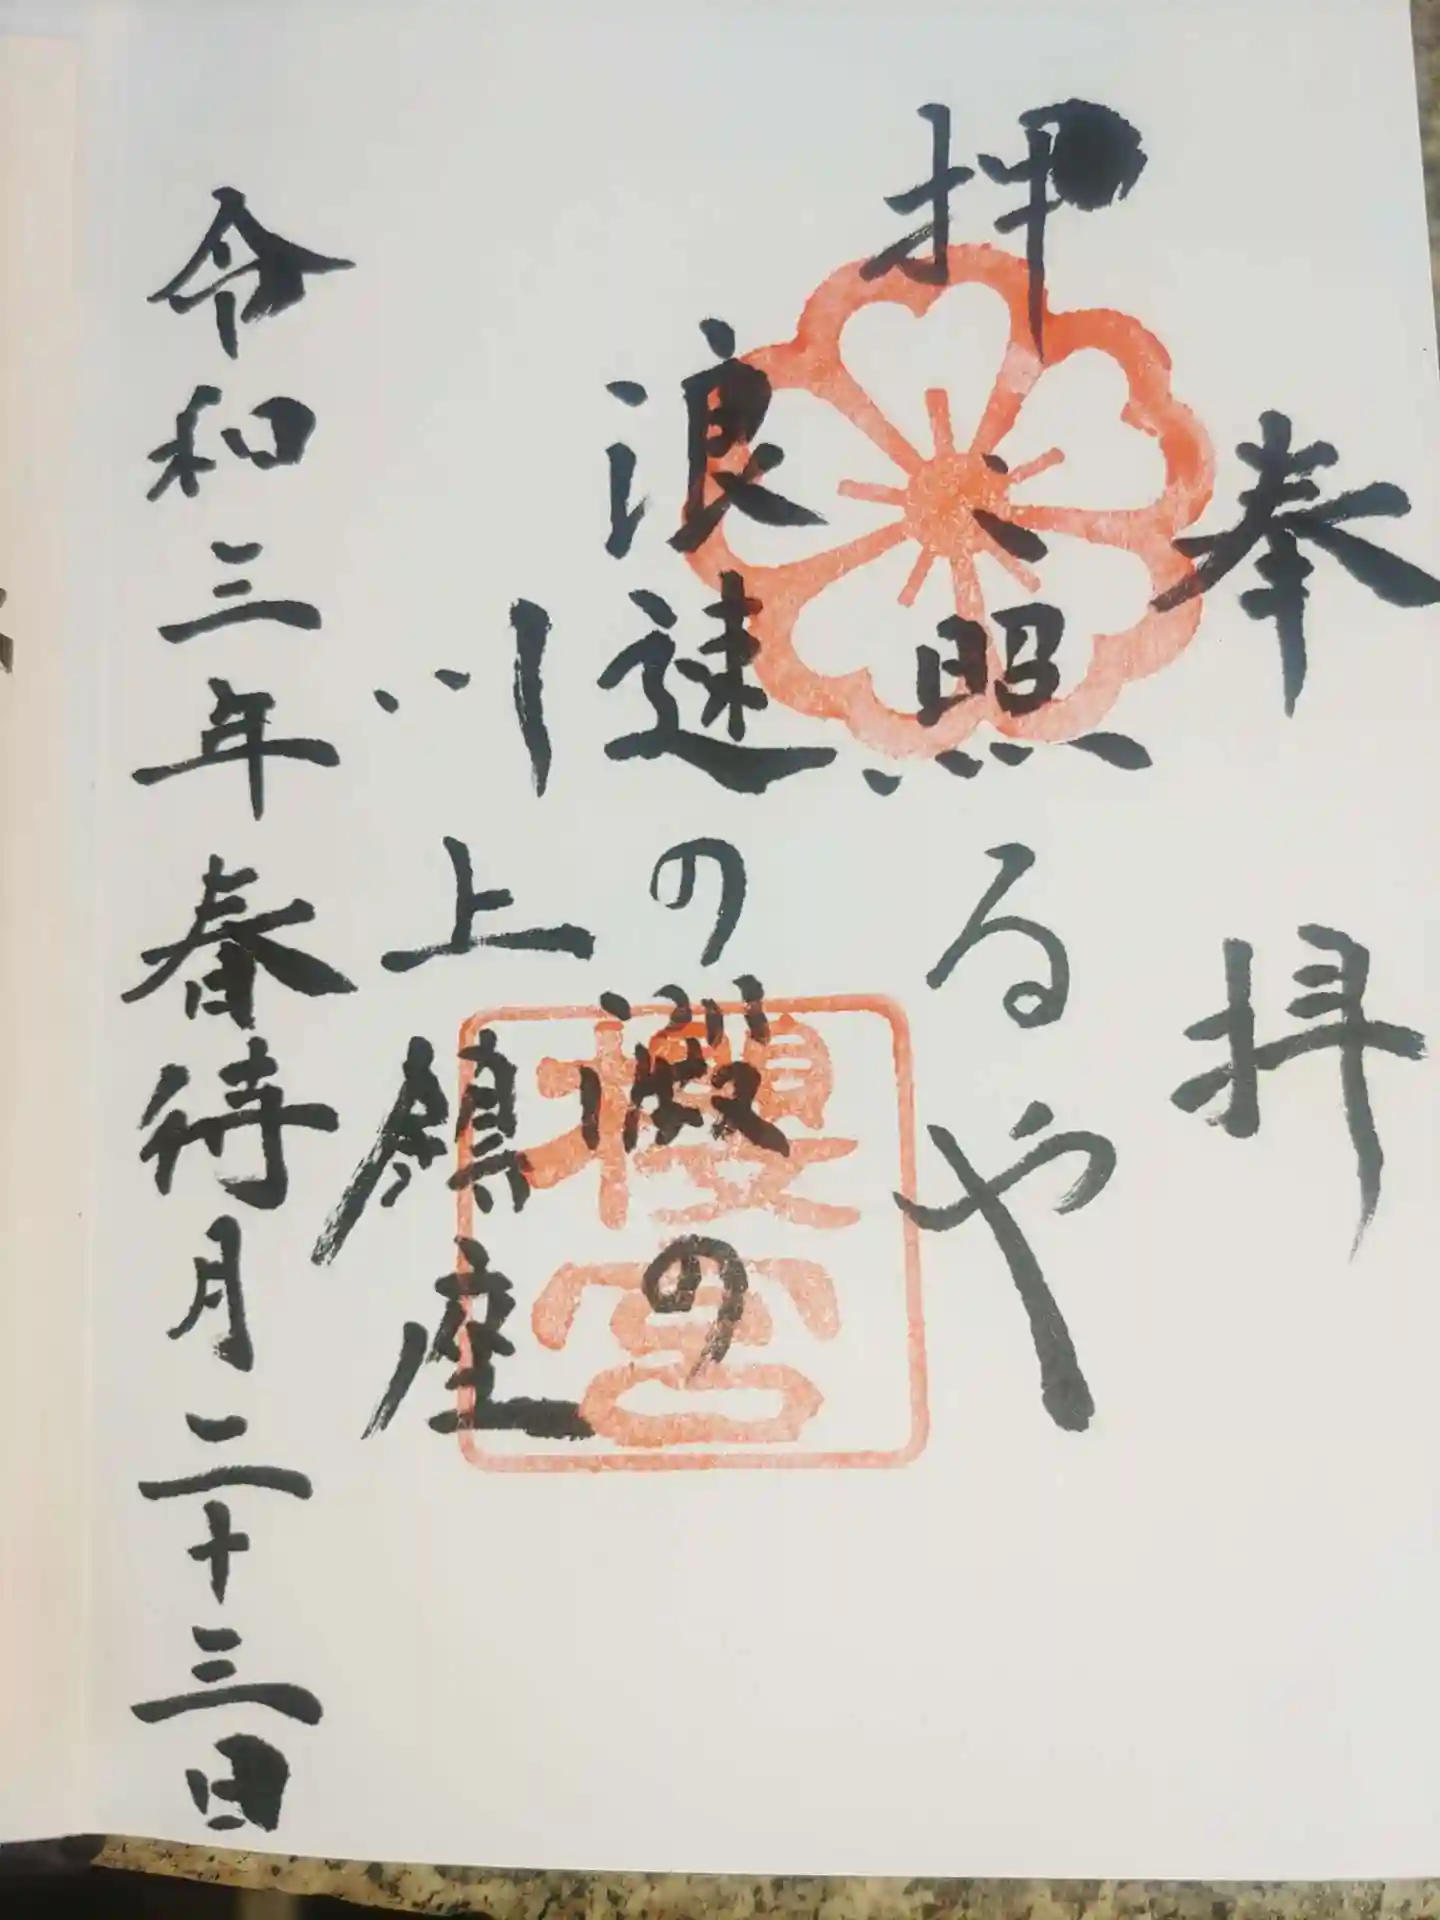 奉拝
押照るや
浪速のの
川上鎮座
令和三年春待月二十三日
櫻宮